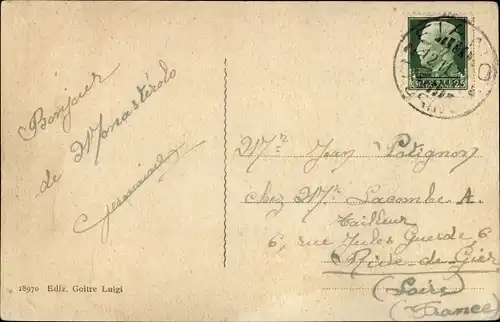 Bonjour
de Monasterolo
Mr Jean Potignon
chez Mr Lacombe A.
Tailleur
6, rue Jules Guesde 6
Rive-de-Gier
(Loire)
(France)
18970 Ediz. Goitre Luigi